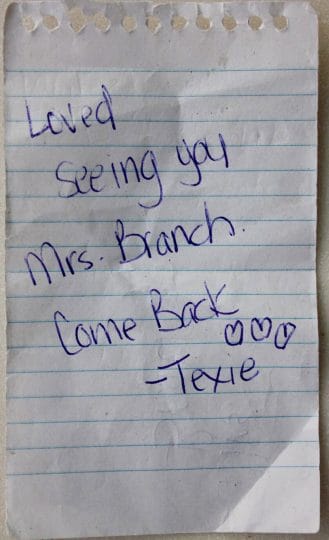 Loved
Seeing you
Mrs. Branch.
Come Back
♡♡♡
-Texie